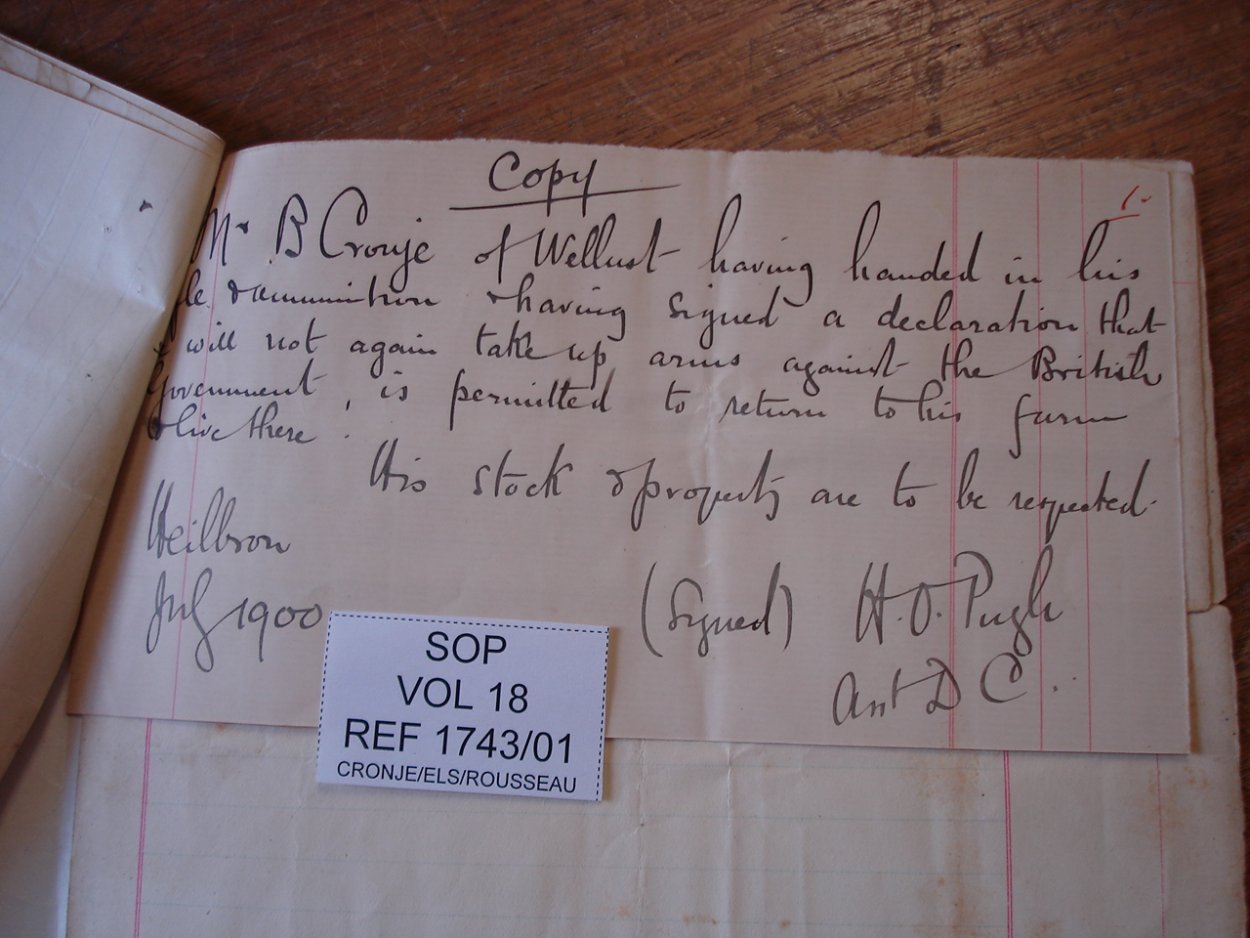 Copy
1.
Mr B Cronje of Wellust having handed in his
& ammunition & having signed a declaration that
will not again take up arms against the British
Government, is permitted to return to his farm
& live there.
His stock & property are to be respected.
Heilbron
July 1900
(Signed) H. O. Pugh
Asst D C.
SOP
VOL 18
REF 1743/01
CRONJE/ELS/ROUSSEAU